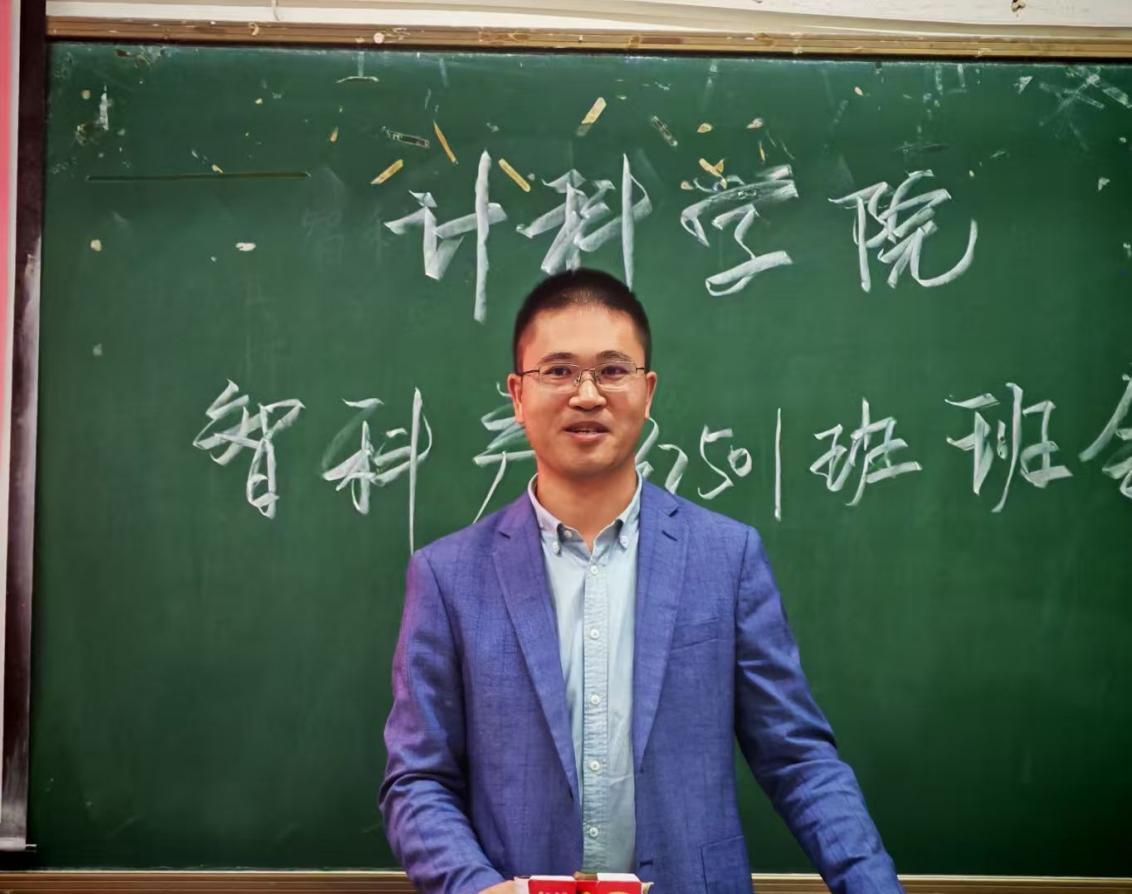 计科学院
智科产 2501班班会